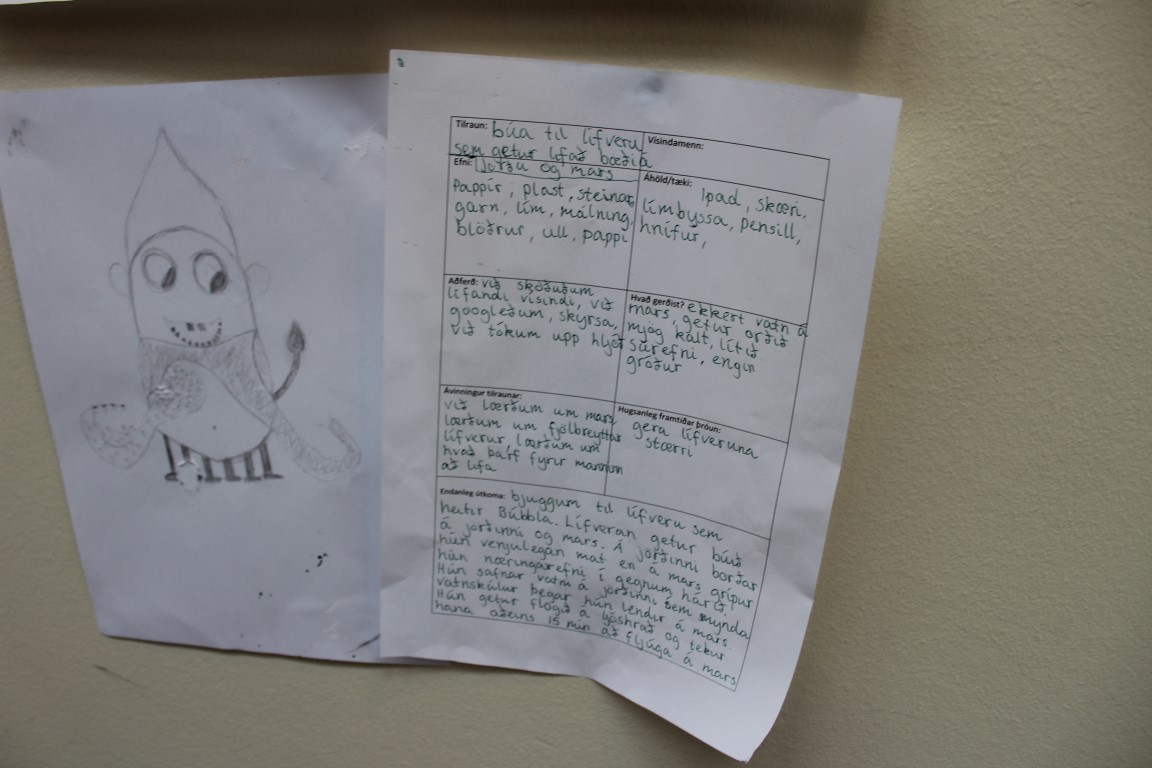 Tilraun: búa til lífveru
sem getur lifað bæði á
jörðu og mars
Vísindamenn:
Efni:
Pappír, plast, steinar,
garn, lím, málning,
blöðrur, ull, pappi
Áhöld/tæki: Ipad, skæri,
límbyssa, pensill,
hnífur,
Aðferð: við skoðuðum
lifandi vísindi, við
googleðum, skyrsa,
við tókum upp hljóð
Hvað gerðist? ekkert vatn á
mars, getur orðið
mjög kalt, lítið
súrefni, engin
gróður
Ávinningur tilraunar:
við lærðum um mars,
lærðum um fjölbreyttar
lífverur lærðum um
hvað þarf fyrir mannin
að lifa
Hugsanleg framtíðar þróun:
gera lífveruna
stærri
Endanleg útkoma: bjuggum til lífveru sem
heitir Búbbla. Lífveran getur búið
á jörðinni og mars. Á jörðinni borðar
hún venjulegan mat en á mars grípur
hún næringarefni í gegnum hárið.
Hún safnar vatni á jörðinni sem mynda
vatnskúlur þegar hún lendir á mars
Hún getur flogið á ljóshrað og tekur
hana aðeins 15 mín að fljúga á mars